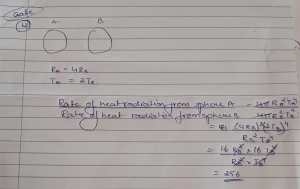 A B
RA = 4RB
TA = 2TB
Rate of heat radiation from sphere A = 4πRA²TA⁴
Rate of heat radiation from sphere B 4πRB²TB⁴
= (4RB)²(2TB)⁴
RB²TB⁴
= 16 RB² × 16 TB⁴
RB² × TB⁴
= 256